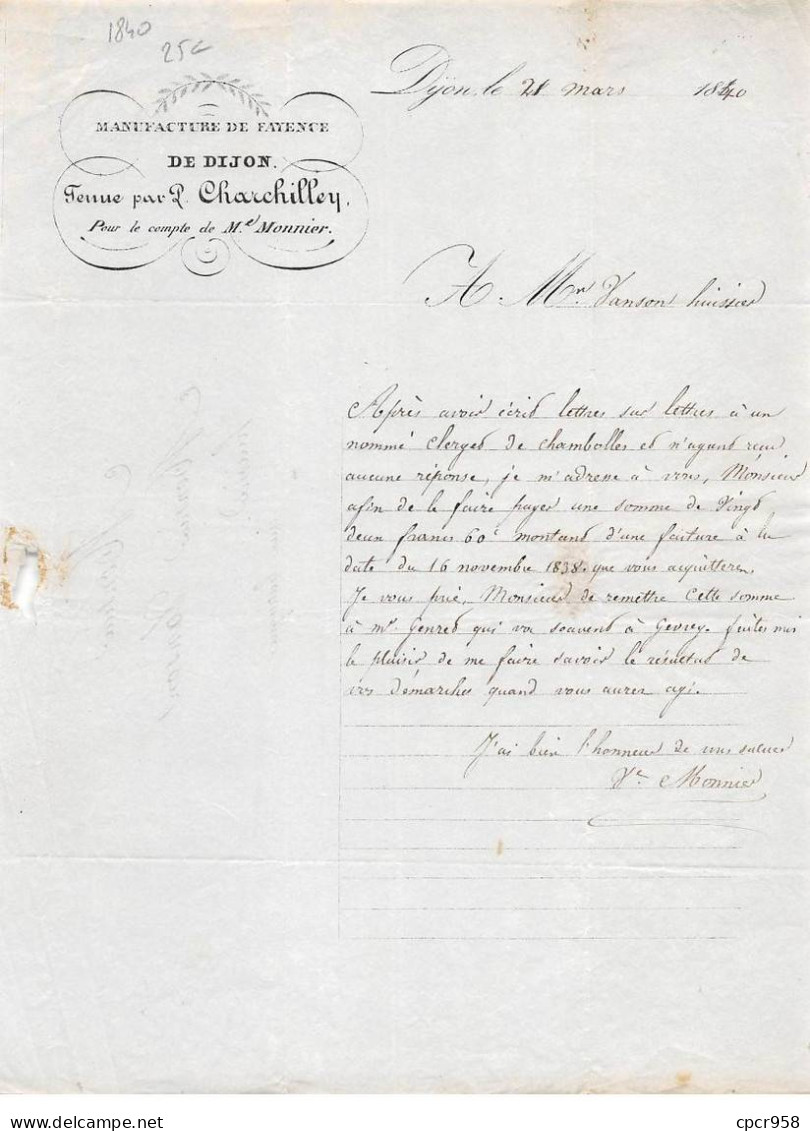 1840
25c
MANUFACTURE DE FAYENCE
DE DIJON.
Tenue par P. Charchilley,
Pour le compte de M.e Monnier.
Dijon, le 21 mars 1840
A Mr. Vanson huissier
Après avoir écrid lettres sur lettres à un
nommé Clerged de Chambolles ed n'ayand reçu
aucune réponse, je m'adresse à vous, Monsieur
afin de le faire payer une somme de Vingd
deux francs 60c montand d'une facture à la
date du 16 novembre 1838. que vous acquitterez,
Je vous prie, Monsieur de remettre cette somme
à mr. Genred qui va souvend à Gevrey. faites moi
le plaisir de me faire savoir le résultad de
vos démarches quand vous aurez agi.
J'ai bien l'honneur de vous saluer
Ve Monnier
cpcr958